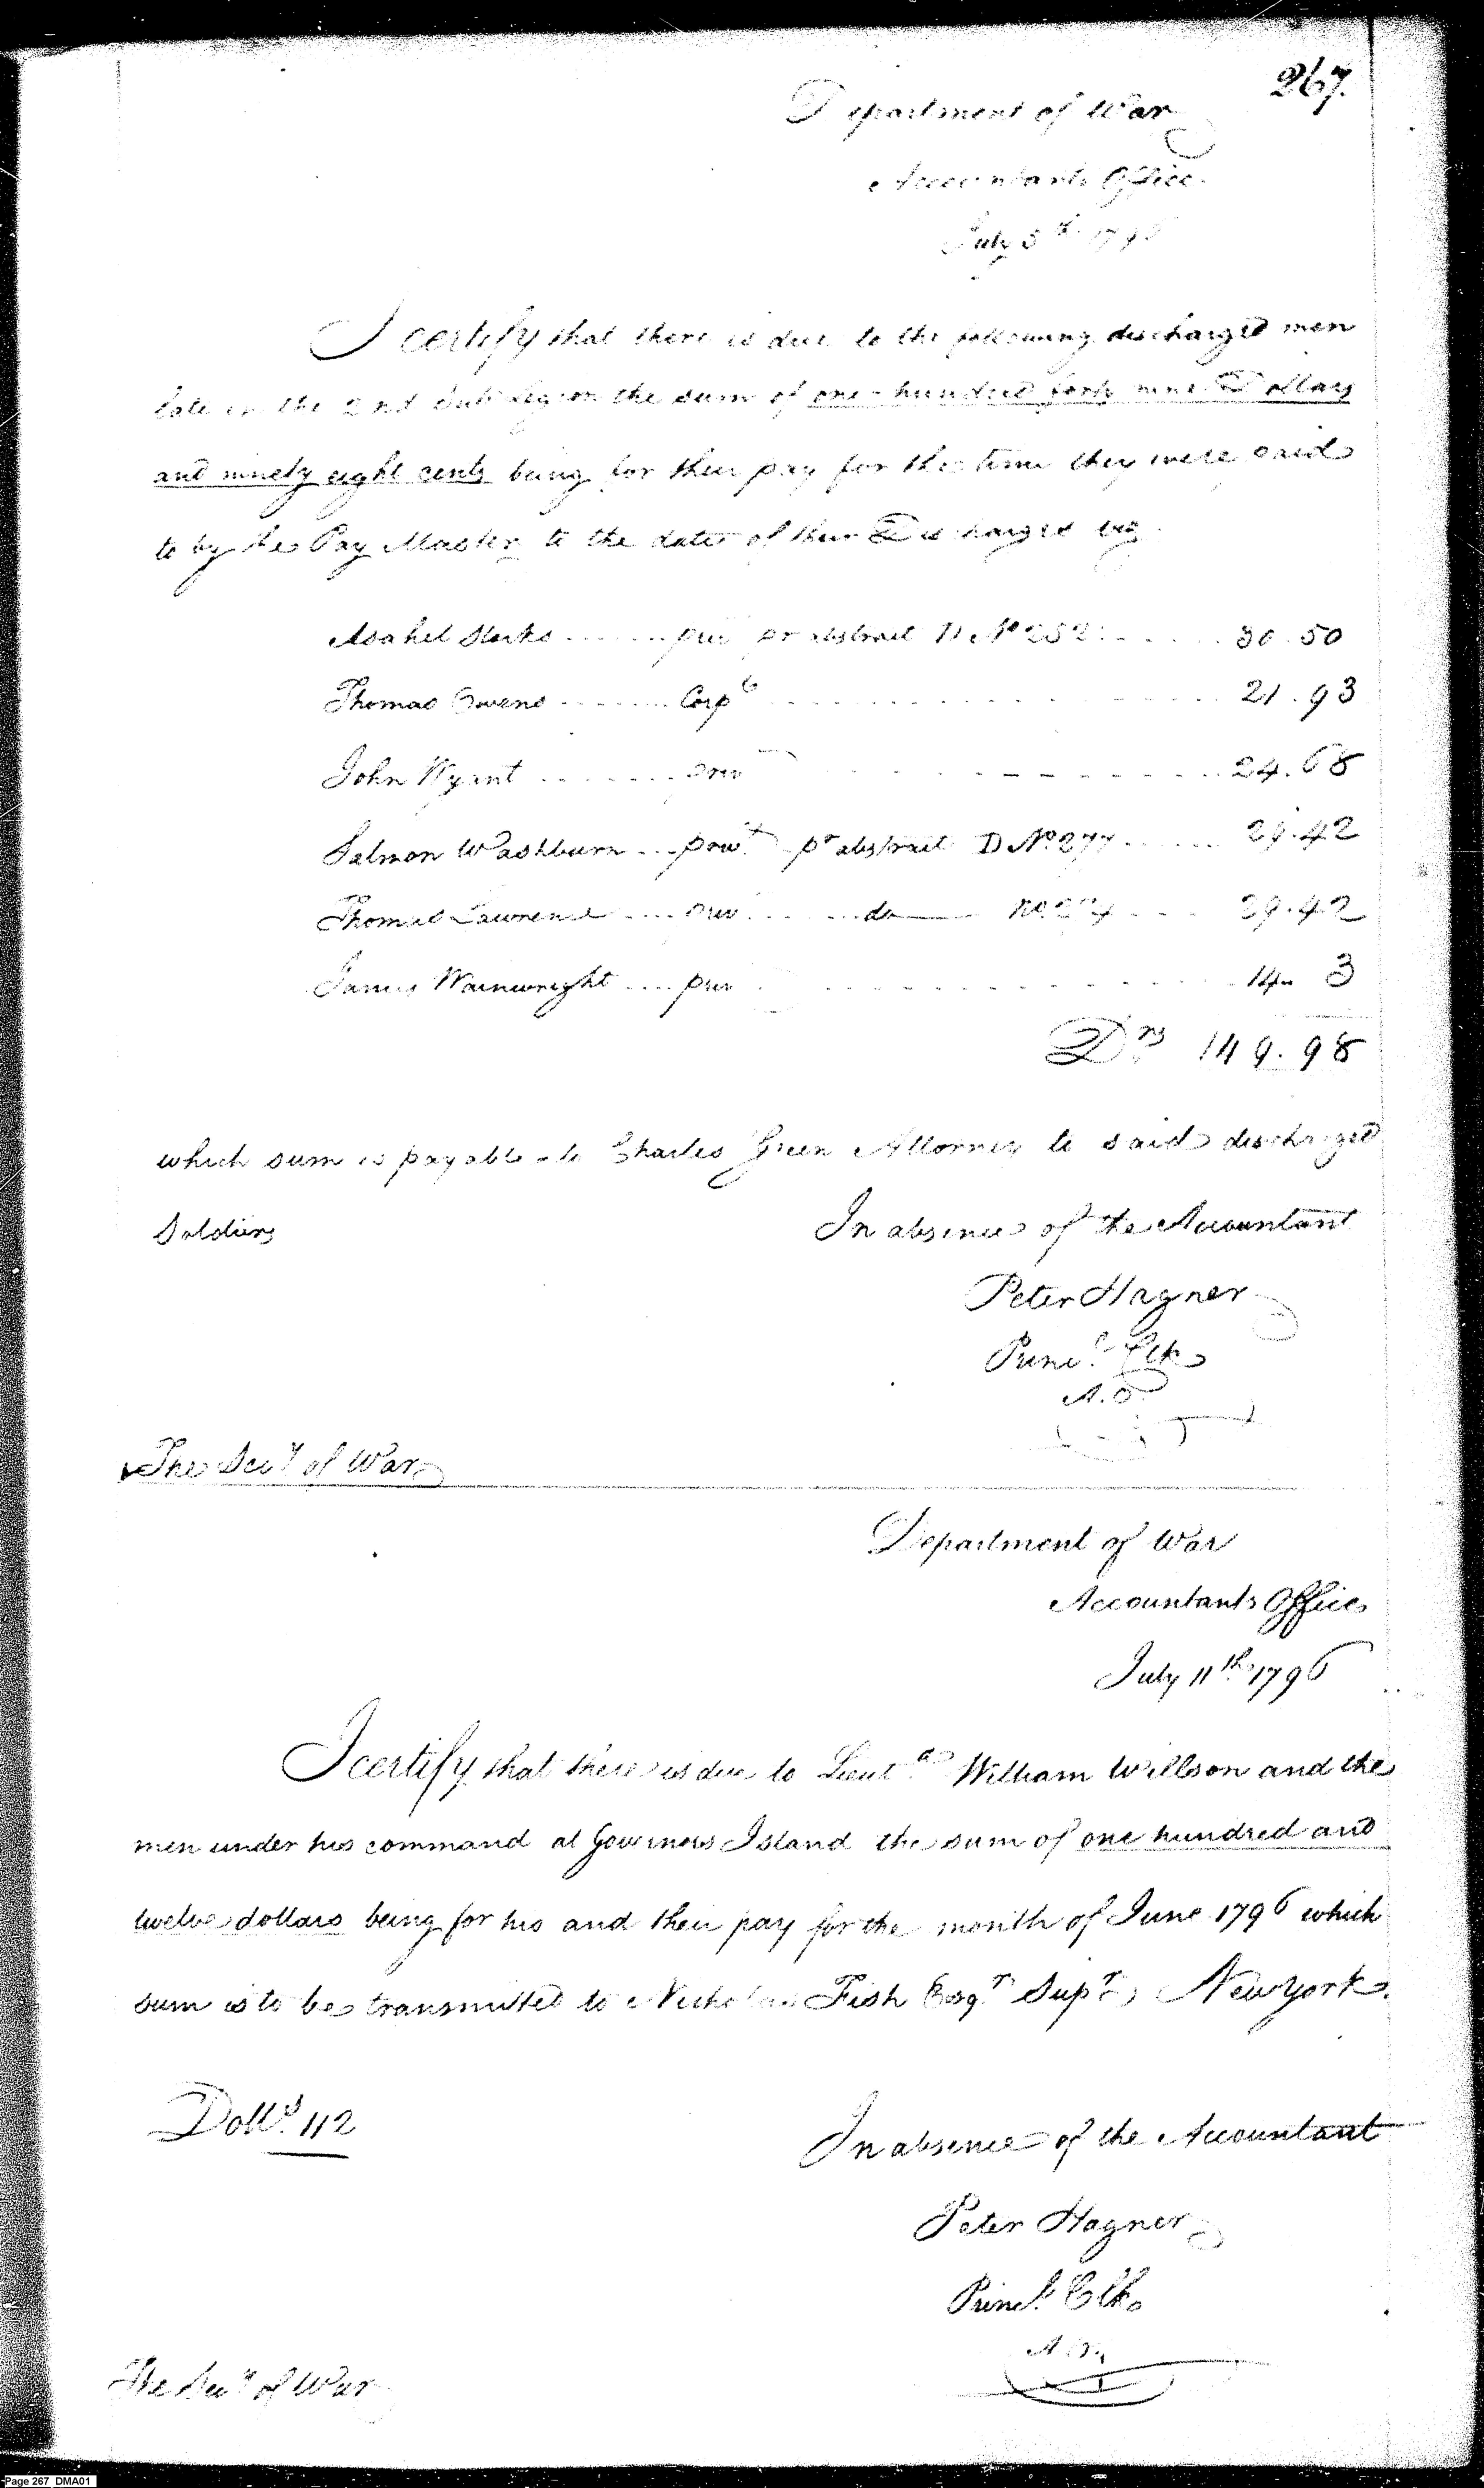 267.
Department of War
Accountants Office
July 5th 1796
I certify that there is due to the following discharged men
late in the 2nd Sub Legion the sum of one hundred forty nine Dollars
and ninety eight cents being for their pay for the time they were paid
to by the Pay Master to the dates of their Discharges viz
Asahel ..... priv pr abstract D No 252 ..... 30.50
Thomas Owens ....... Corpl ..... 21.93
John Wyant ....... priv ..... 24.68
Salmon Washburn ... privt pr abstract D No 277 ..... 29.42
Thomas Lawrence .... priv ..... do No ..... 29.42
James Wainwright .... priv ..... 14 " 3
Drs 149.98
which sum is payable to Charles Green Attorney to said discharged
Soldiers
In absence of the Accountant
Peter Hagner
Princl. Clk
A.O.
The Secy of War
Department of War
Accountants Office
July 11th 1796
I certify that there is due to Lieut. William Willson and the
men under his command at Governors Island the sum of one hundred and
twelve dollars being for his and their pay for the month of June 1796 which
sum is to be transmitted to Nicholas Fish Esqr. Supr. New York.
Dolls. 112
In absence of the Accountant
Peter Hagner
Princl. Clk
A.O.
The Secy of War
Page 267_DMA01